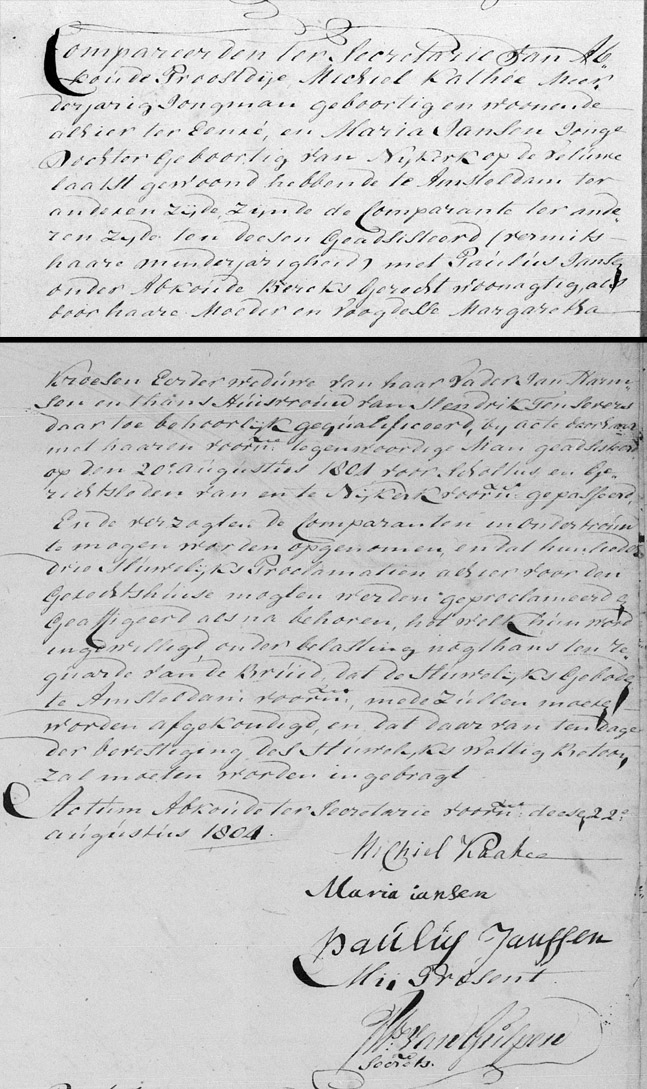 Compareerden ter Secretarie van Ab,
koude Proostdije Michiel Kathée Meer
derjarig Jongman geboortig en woonende
alhier ter eenre, en Maria Jansen Jonge
Dochter Geboortig van Nijkerk op de Veluwe
laatst gewoond hebbende te Amsteldam ter
anderen zijde, zijnde de Comparante ter ande
ren zyde ten deesen Geadsisteerd (vermits
haare minderjarigheid) met Paulus Janse
onder Abkoude Kerks Gerecht woonagtig, als
door haare Moeder en Voogdesse Margaretha
Kroesen Eerder weduwe van haar Vader Jan Harm
sen en thans Huisvrouw van Hendrik
daar toe behoorlijk gequalificeerd, bij acte door haar
met haaren voorn: tegenwoordige Man geadsisteerd
op den 20e augustus 1804 voor Scholtus en Ge,
richtsleden van en te Nijkerk voorn: gepasseerd
Ende verzogten de Comparanten in ondertrouw
te mogen worden opgenomen, en dat hun
drie Huwelijks Proclamatien alhier voor den
Gerechtshuise mogten werden geproclameerd &
Geaffigeerd als na behoren, het welk hun word
ingewilligd, onder belasting nogthans ten re,
guarde van de Bruid, dat de Huwelijks Gebode
te Amsteldam voorn:, mede zullen moeten
worden afgekondigd, en dat daar van ten dage
der bevestiging des Huwelijks wettig Betoon,
zal moeten worden ingebragt
Actum Abkoude ter Secretarie voorn: deese 22e
augustus 1804.
Michiel Kaahee
Maria iansen
Paulus Janssen
Mij Present
W: Van Gulpen
Secrets.